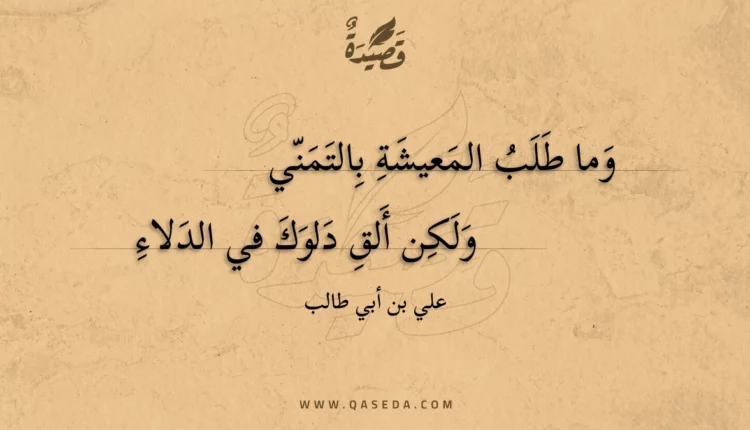 قَصِيْدَةٌ
وَما طَلَبُ المَعيشَةِ بِالتَمَنّي
وَلَكِن أَلقِ دَلوَكَ في الدَلاءِ
علي بن أبي طالب
WWW.QASEDA.COM